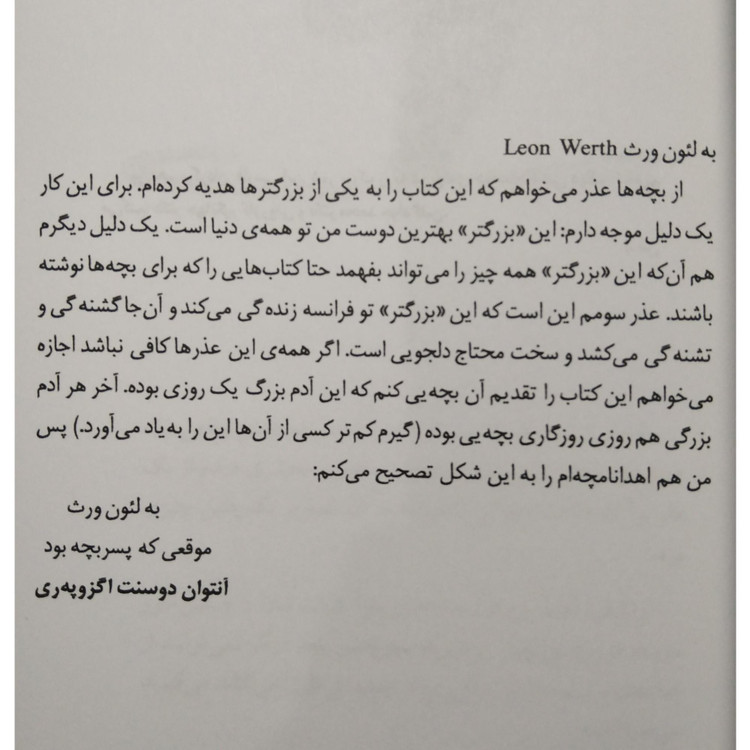 به لئون ورث Leon Werth
از بچه‌ها عذر می‌خواهم که این کتاب را به یکی از بزرگترها هدیه کرده‌ام. برای این کار
یک دلیل موجه دارم: این «بزرگتر» بهترین دوست من تو همه‌ی دنیا است. یک دلیل دیگرم
هم آن‌که این «بزرگتر» همه چیز را می‌تواند بفهمد حتا کتاب‌هایی را که برای بچه‌ها نوشته
باشند. عذر سومم این است که این «بزرگتر» تو فرانسه زنده‌گی می‌کند و آن‌جا گشنه‌گی و
تشنه‌گی می‌کشد و سخت محتاج دلجویی است. اگر همه‌ی این عذرها کافی نباشد اجازه
می‌خواهم این کتاب را تقدیم آن بچه‌یی کنم که این آدم بزرگ یک روزی بوده. آخر هر آدم
بزرگی هم روزی روزگاری بچه‌یی بوده (گیرم کم‌تر کسی از آن‌ها این را به‌یاد می‌آورد.) پس
من هم اهدانامچه‌ام را به این شکل تصحیح می‌کنم:
به لئون ورث
موقعی که پسربچه بود
آنتوان دوسنت اگزوپه‌ری